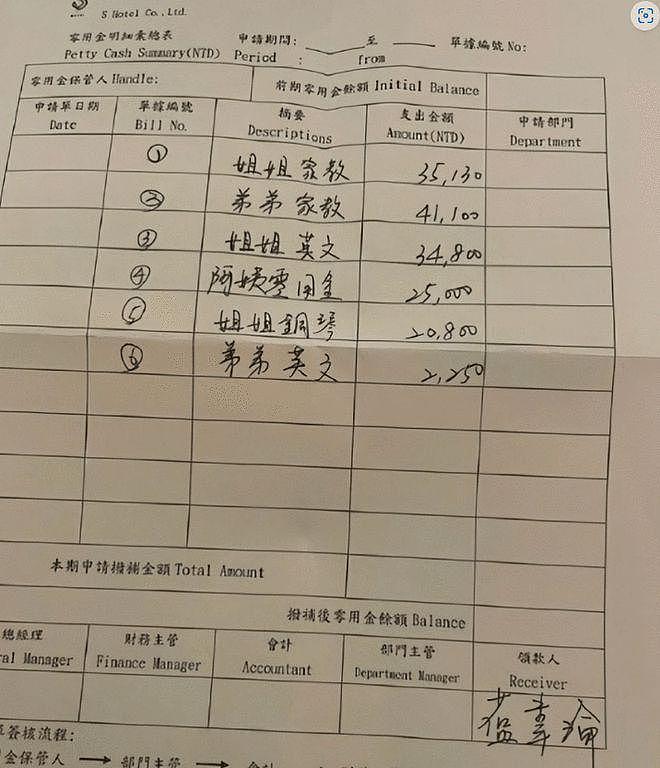 S Hotel Co., Ltd.
零用金明細彙總表 申請期間: 至 單據編號 No:
Petty Cash Summary(NTD) Period : from
零用金保管人 Handle: 前期零用金餘額 Initial Balance
申請單日期 單據編號 摘要 支出金額 申請部門
Date Bill No. Descriptions Amount(NTD) Department
① 姐姐家教 35,130
② 弟弟家教 41,100
③ 姐姐英文 34,800
④ 阿姨零用金 25,000
⑤ 姐姐鋼琴 20,800
⑥ 弟弟英文 2,250
本期申請撥補金額 Total Amount
撥補後零用金餘額 Balance
總經理 財務主管 會計 部門主管 領款人
ral Manager Finance Manager Accountant Department Manager Receiver
單簽核流程:
金保管人 → 部門主管 →